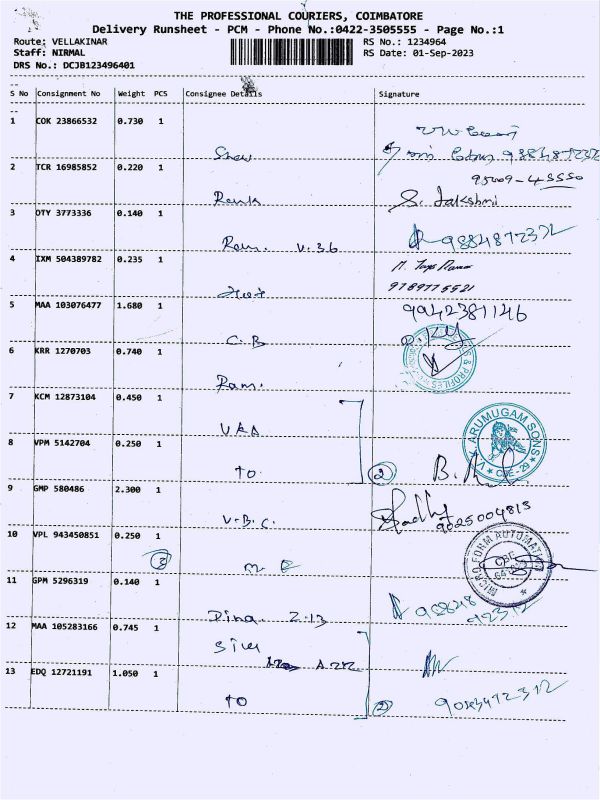 THE PROFESSIONAL COURIERS, COIMBATORE
Delivery Runsheet - PCM - Phone No.:0422-3505555 - Page No.:1
Route: VELLAKINAR RS No.: 1234964
Staff: NIRMAL RS Date: 01-Sep-2023
DRS No.: DCJB123496401
S No Consignment No Weight PCS Consignee Details Signature
1 COK 23866532 0.730 1
9884872372
2 TCR 16985852 0.220 1
95009-45550
S. Jakshmi
3 OTY 3773336 0.140 1
Ram. V.36 9884872372
4 IXM 504389782 0.235 1
9789775521
5 MAA 103076477 1.680 1 9942381146
C.B
6 KRR 1270703 0.740 1
Ram.
7 KCM 12873104 0.450 1
V. ARUMUGAM SONS
CBE-29
8 VPM 5142704 0.250 1
TO 2
9 GMP 580486 2.300 1
V.B.C. 9025004813
10 VPL 943450851 0.250 1
3 MICRO FORM AUTOMATION
CBE
11 GPM 5296319 0.140 1
Dina 2.13
12 MAA 105283166 0.745 1
Siva
13 EDQ 12721191 1.050 1
TO 2